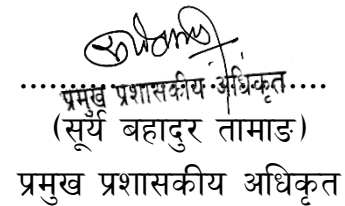 प्रमुख प्रशासकीय अधिकृत
(सूर्य बहादुर तामाङ)
प्रमुख प्रशासकीय अधिकृत